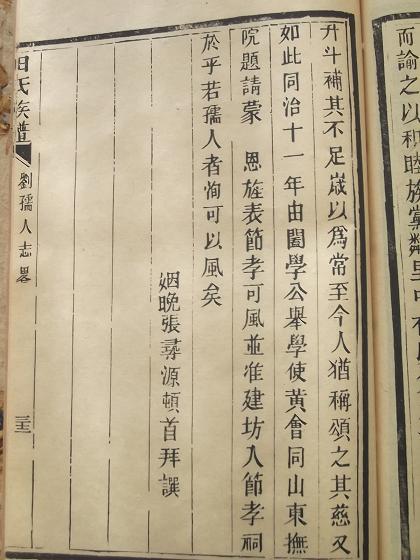 而諭之以和睦族黨鄰里
升斗補其不足嵗以爲常至今人猶稱頌之其慈又
如此同治十一年由闔學公舉學使黃會同山東撫
院題請蒙　恩旌表節孝可風並准建坊入節孝祠
於乎若孺人者洵可以風矣
姻晩張尋源頓首拜譔
田氏族譜
劉孺人志畧